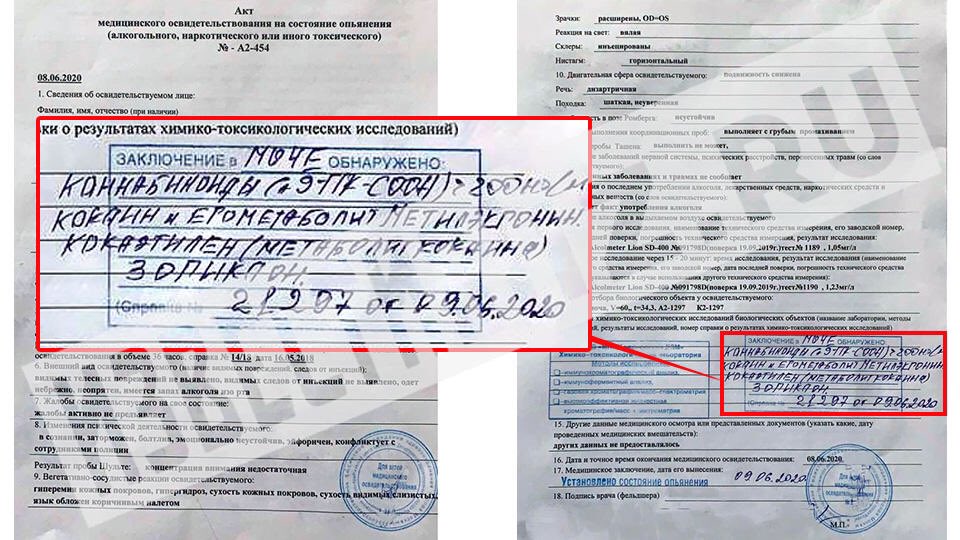 Акт
медицинского освидетельствования на состояние опьянения
(алкогольного, наркотического или иного токсического)
№ - А2-454
08.06.2020
1. Сведения об освидетельствуемом лице:
Фамилия, имя, отчество (при наличии)
ки о результатах химико-токсикологических исследований)
ЗАКЛЮЧЕНИЕ в МОЧЕ ОБНАРУЖЕНО:
КАННАБИНОИДЫ
КОКАИН и ЕГО МЕТАБОЛИТ МЕТИЛЭКГОНИН.
КОКАЭТИЛЕН (МЕТАБОЛИТ КОКАИНА)
ЗОПИКЛОН.
(Справка № 21297 от 09.06.2020
освидетельствования в объеме 36 часов, справка № 14/18 дата 16.05.2018
6. Внешний вид освидетельствуемого (наличие видимых повреждений, следов от инъекций):
видимых телесных повреждений не выявлено, видимых следов от инъекций не выявлено, одет
небрежно, неопрятен, имеется запах алкоголя изо рта
7. Жалобы освидетельствуемого на свое состояние:
жалобы активно не предъявляет
8. Изменения психической деятельности освидетельствуемого:
в сознании, заторможен, болтлив, эмоционально неустойчив, эйфоричен, конфликтует с
сотрудниками полиции
Результат пробы Шульте: концентрация внимания недостаточная
9. Вегетативно-сосудистые реакции освидетельствуемого:
гиперемия кожных покровов, гипергидроз, сухость кожных покровов, сухость видимых слизистых,
язык обложен коричневым налетом
Для актов медицинского освидетельствования
Зрачки: расширены, OD=OS
Реакция на свет: вялая
Склеры: инъецированы
Нистагм: горизонтальный
10. Двигательная сфера освидетельствуемого: подвижность снижена
Речь: дизартричная
Походка: шаткая, неуверенная
в позе Ромберга: неустойчив
выполнения координационных проб: выполняет с грубым промахиванием
пробы Ташена: выполнить не может,
заболеваний нервной системы, психических расстройств, перенесенных травм (со слов
заболеваниях и травмах не сообщает
о последнем употреблении алкоголя, лекарственных средств, наркотических средств и
веществ (со слов освидетельствуемого):
факт употребления алкоголя
алкоголя в выдыхаемом воздухе освидетельствуемого
исследования, наименование технического средства измерения, его заводской номер,
поверки, погрешность технического средства измерения, результат исследования:
Alcolmeter Lion SD-400 №091798D(поверка 19.09.2019г.)тест№ 1189 , 1,05мг/л
исследование через 15 - 20 минут: время исследования, результат исследования (наименование
средства измерения, его заводской номер, дата последней поверки, погрешность технического средства
в случае использования другого технического средства измерения):
Alcolmeter Lion SD-400 №091798D(поверка 19.09.2019г.)тест№1190 , 1,23мг/л
отбора биологического объекта у освидетельствуемого:
моча, V=60., t=34,3, А2-1297 К2-1297
химико-токсикологических исследований биологических объектов (название лаборатории, методы
результаты исследований, номер справки о результатах химико-токсикологических исследований)
Химико-токсикологическая лаборатория
Методы исследования:
иммунохроматографический анализ,
иммуноферментный анализ,
газовая хроматография/масс-спектрометрия
высокоэффективная жидкостная
хроматография/масс - спектрометрия
ЗАКЛЮЧЕНИЕ в МОЧЕ ОБНАРУЖЕНО:
КАННАБИНОИДЫ
КОКАИН и ЕГО МЕТАБОЛИТ МЕТИЛЭКГОНИН
КОКАЭТИЛЕН (МЕТАБОЛИТ КОКАИНА)
ЗОПИКЛОН.
(Справка № 21297 от 09.06.2020
15. Другие данные медицинского осмотра или представленных документов (указать какие, дату
проведенных медицинских вмешательств):
других данных не предоставлялось
16. Дата и точное время окончания медицинского освидетельствования 08.06.2020
17. Медицинское заключение, дата его вынесения:
Установлено состояние опьянения 09.06.2020
18. Подпись врача (фельдшера)
М.П.